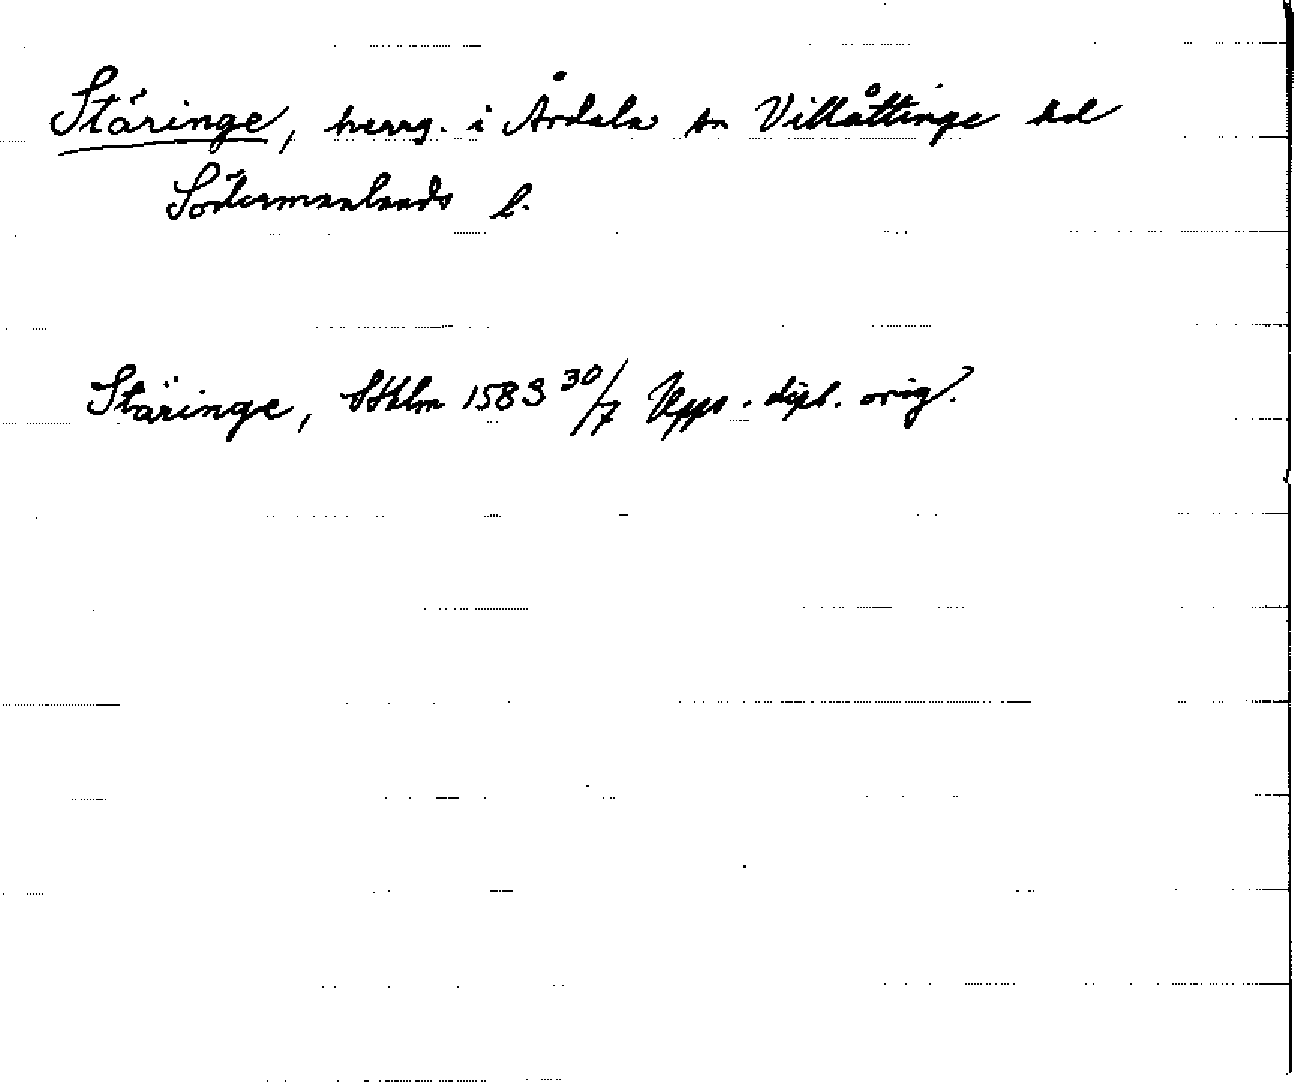 Stäringe, herrg. i Årdala sn Villåttinge hd
Södermanlands l.
Stäringe, Sthlm 1583 30/7 Upps. dipl. orig.